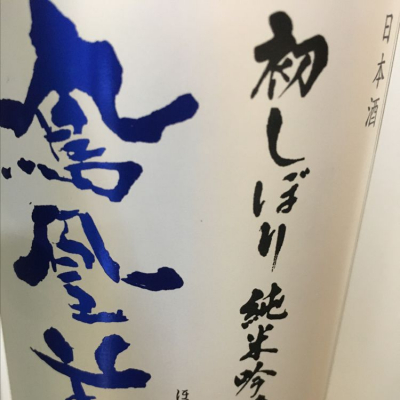 日本酒
初しぼり 純米吟
鳳凰美
ほ